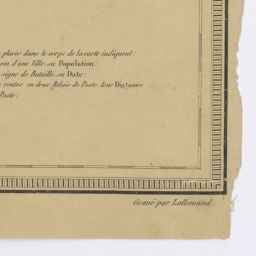 placés dans le corps de la carte indiquent
d'une Ville, sa Population.
signe de Bataille, sa Date.
entre deux Relais de Poste leur Distance
Poste.
Gravé par Lallemand.